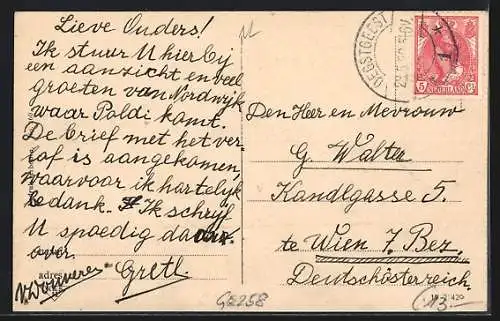 Lieve Ouders!
Ik stuur U hierbij
een aanzicht en veel
groeten van Nordwijk
waar Poldi komt.
De brief met het ver-
lof is aangekomen,
waarvoor ik hartelijk
bedank. Ik schrijf
U spoedig
over.
Gretl.
adres
OEGSTGEEST
5 NEDERLAND Ct
Den Heer en Mevrouw
G. Walter
Kandlgasse 5.
te Wien 7. Bez.
Deutschösterreich.
GE258
13.-